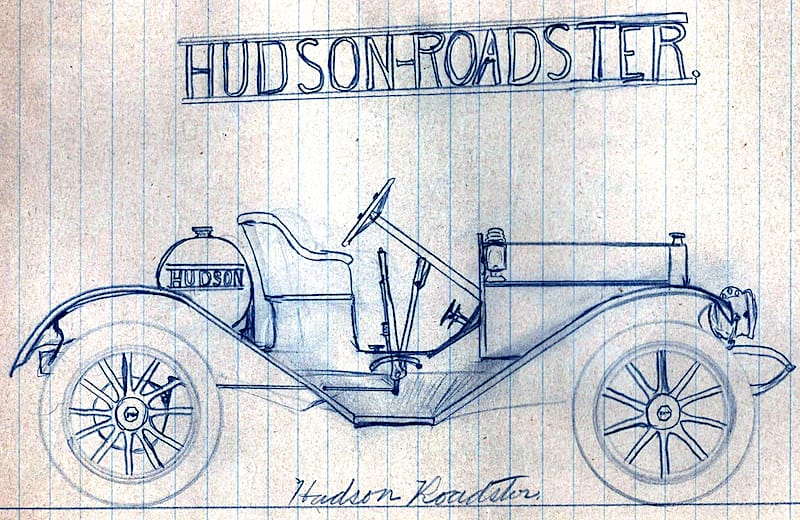 HUDSON-ROADSTER.
HUDSON
Hudson Roadster.